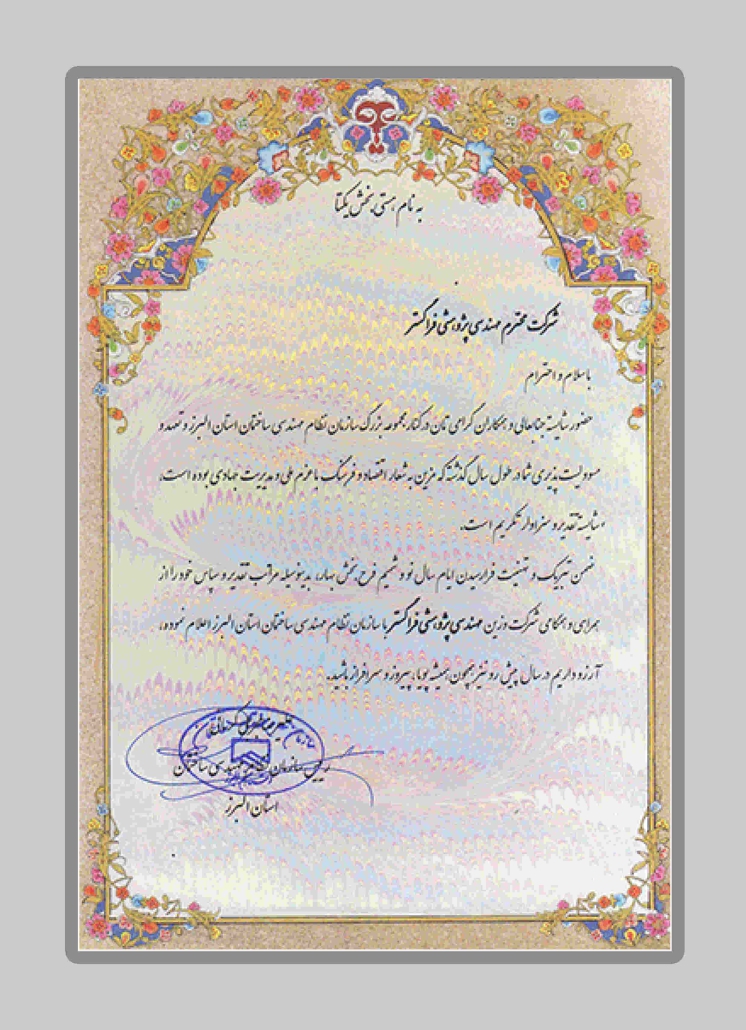 به نام هستی بخش یکتا
شرکت محترم مهندسی پژوهشی فراگستر
با سلام و احترام
حضور شایسته جنابعالی و همکاران گرامی تان در کنار مجموعه بزرگ سازمان نظام مهندسی ساختمان استان البرز و تعهد و
مسوولیت پذیری شما در طول سال گذشته که مزین به شعار اقتصاد و فرهنگ با عزم ملی و مدیریت جهادی بوده است،
شایسته تقدیر و سزاوار تکریم است.
ضمن تبریک و تهنیت فرارسیدن ایام سال نو و شمیم فرح بخش بهار، بدینوسیله مراتب تقدیر و سپاس خود را از
همراهی و همگامی شرکت وزین مهندسی پژوهشی فراگستر با سازمان نظام مهندسی ساختمان استان البرز اعلام نموده،
آرزو داریم در سال پیش رو نیز همچون همیشه پویا، پیروز و سرافراز باشید.
رییس سازمان نظام مهندسی ساختمان
استان البرز